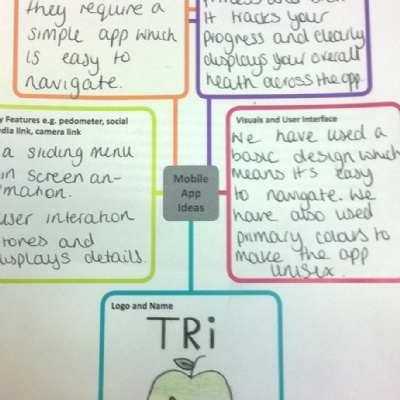 they require a
simple app which
is easy to
navigate.
It tracks your
progress and clearly
displays your overall
heath across the app.
y Features e.g. pedometer, social
dia link, camera link
a sliding menu
in screen an-
mation.
user interation
tones and
isplays details.
Mobile
App
Ideas
Visuals and User Interface
We have used a
basic design which
means it's easy
to navigate. We
have also used
primary colours to
make the app
unisex.
Logo and Name
TRi